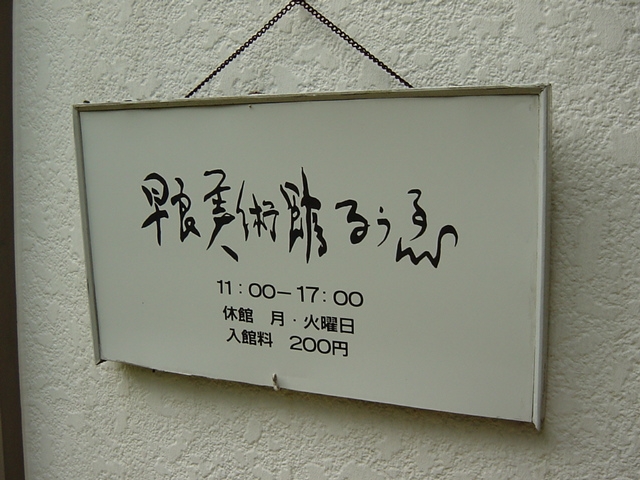 早良美術館るうゑ
11:00-17:00
休館 月・火曜日
入館料 200円